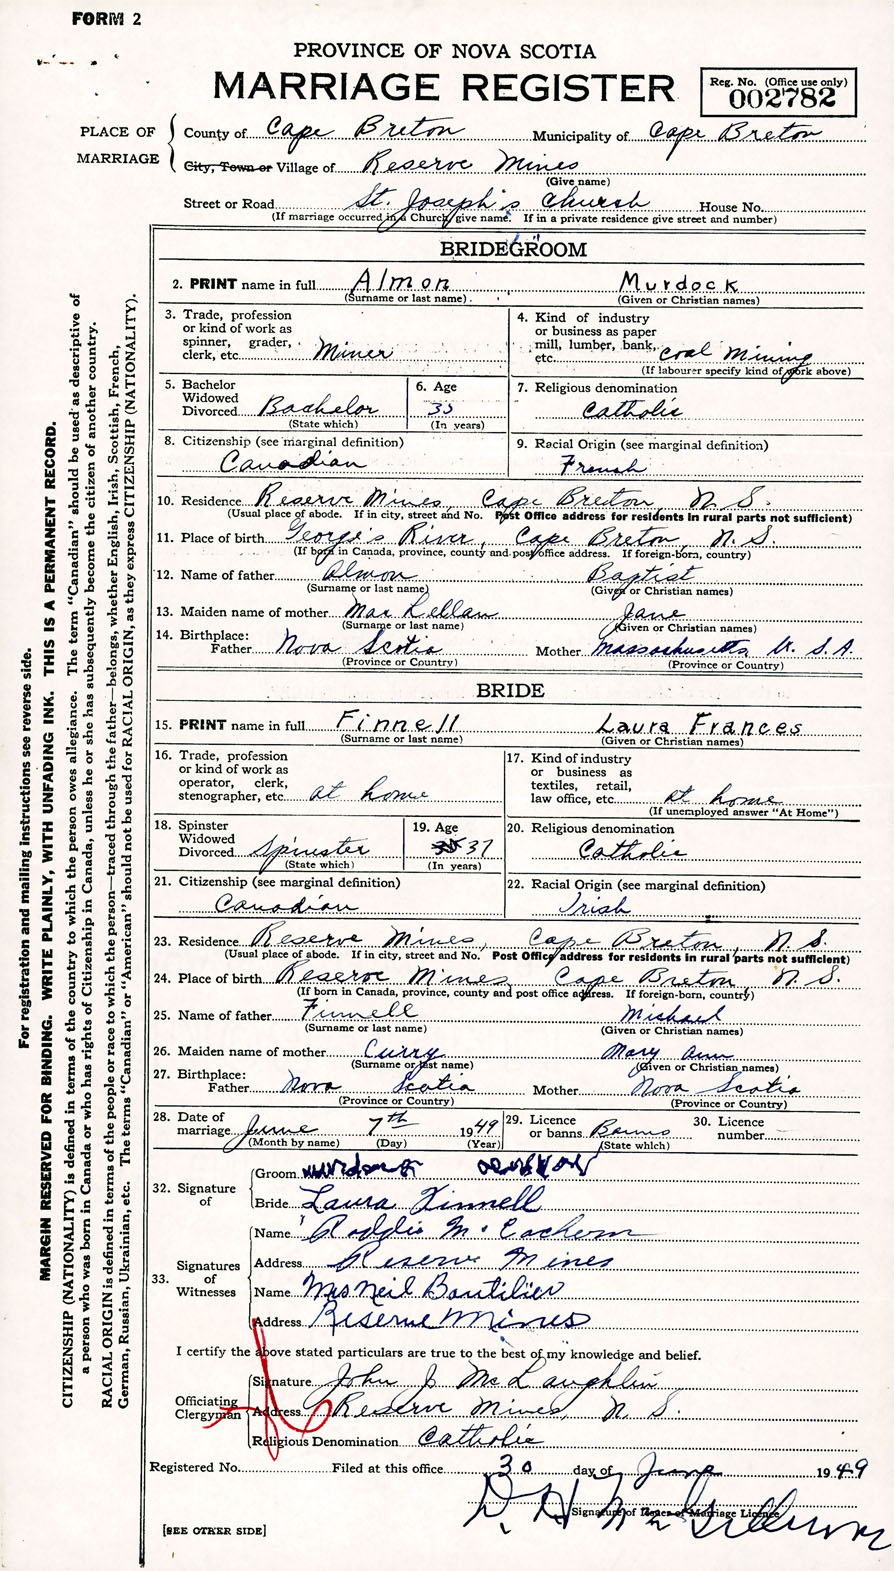 FORM 2
PROVINCE OF NOVA SCOTIA
MARRIAGE REGISTER
Reg. No. (Office use only)
002782
PLACE OF MARRIAGE
County of Cape Breton Municipality of Cape Breton
City, Town or Village of Reserve Mines
(Give name)
Street or Road St. Joseph's Church House No.
(If marriage occurred in a Church give name. If in a private residence give street and number)
BRIDEGROOM
2. PRINT name in full Almon Murdock
(Surname or last name) (Given or Christian names)
3. Trade, profession or kind of work as spinner, grader, clerk, etc. Miner
4. Kind of industry or business as paper mill, lumber, bank, etc. Coal Mining
(If labourer specify kind of work above)
5. Bachelor Widowed Divorced Bachelor
(State which)
6. Age 35
(In years)
7. Religious denomination
Catholic
8. Citizenship (see marginal definition)
Canadian
9. Racial Origin (see marginal definition)
French
10. Residence Reserve Mines, Cape Breton, N. S.
(Usual place of abode. If in city, street and No. Post Office address for residents in rural parts not sufficient)
11. Place of birth George's River, Cape Breton, N. S.
(If born in Canada, province, county and post office address. If foreign-born, country)
12. Name of father Almon Baptist
(Surname or last name) (Given or Christian names)
13. Maiden name of mother MacLellan Jane
(Surname or last name) (Given or Christian names)
14. Birthplace:
Father Nova Scotia Mother Massachusetts U. S. A.
(Province or Country) (Province or Country)
BRIDE
15. PRINT name in full Finnell Laura Frances
(Surname or last name) (Given or Christian names)
16. Trade, profession or kind of work as operator, clerk, stenographer, etc. at home
17. Kind of industry or business as textiles, retail, law office, etc. at home
(If unemployed answer "At Home")
18. Spinster Widowed Divorced Spinster
(State which)
19. Age 37
(In years)
20. Religious denomination
Catholic
21. Citizenship (see marginal definition)
Canadian
22. Racial Origin (see marginal definition)
Irish
23. Residence Reserve Mines, Cape Breton, N. S.
(Usual place of abode. If in city, street and No. Post Office address for residents in rural parts not sufficient)
24. Place of birth Reserve Mines, Cape Breton N. S.
(If born in Canada, province, county and post office address. If foreign-born, country)
25. Name of father Finnell Michael
(Surname or last name) (Given or Christian names)
26. Maiden name of mother Curry Mary Ann
(Surname or last name) (Given or Christian names)
27. Birthplace:
Father Nova Scotia Mother Nova Scotia
(Province or Country) (Province or Country)
28. Date of marriage June 7th 1949
(Month by name) (Day) (Year)
29. Licence or banns Banns
(State which)
30. Licence number
32. Signature of
Groom
Bride Laura Finnell
33. Signatures of Witnesses
Name Roddie McEachern
Address Reserve Mines
Name Mrs Neil Boutilier
Address Reserve Mines
I certify the above stated particulars are true to the best of my knowledge and belief.
Officiating Clergyman
Signature John J. McLaughlin
Address Reserve Mines, N. S.
Religious Denomination Catholic
Registered No. Filed at this office 30 day of June 1949
Signature of Issuer of Marriage Licence
[SEE OTHER SIDE]
For registration and mailing instructions see reverse side.
MARGIN RESERVED FOR BINDING. WRITE PLAINLY, WITH UNFADING INK. THIS IS A PERMANENT RECORD.
CITIZENSHIP (NATIONALITY) is defined in terms of the country to which the person owes allegiance. The term "Canadian" should be used as descriptive of
a person who was born in Canada or who has rights of Citizenship in Canada, unless he or she has subsequently become the citizen of another country.
RACIAL ORIGIN is defined in terms of the people or race to which the person—traced through the father—belongs, whether English, Irish, Scottish, French,
German, Russian, Ukrainian, etc. The terms "Canadian" or "American" should not be used for RACIAL ORIGIN, as they express CITIZENSHIP (NATIONALITY).